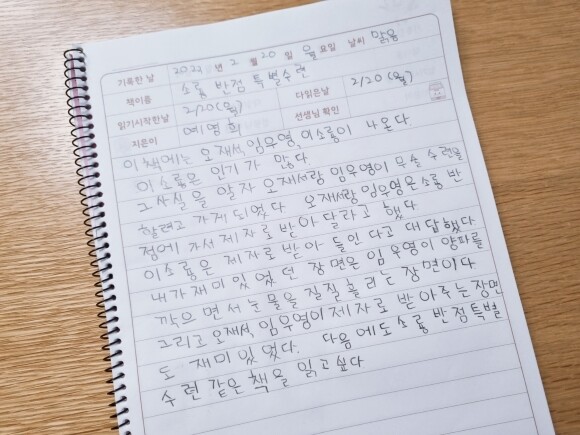 기록한 날 2023 년 2 월 20 일 월 요일 날씨 맑음
책이름 소룡 반점 특별수련
읽기시작한날 2/20(월) 다읽은날 2/20(월)
지은이 예영희 선생님 확인
이 책에는 오재서, 임우영, 이소룡이 나온다
이소룡은 인기가 많다.
그사실을 알자 오재서랑 임우영이 무술 수련을
하려고 가게 되었다 오재서랑 임우영은 소룡 반
점에 가서 제자로 받아 달라고 했다
이소룡은 제자로 받아 들인다고 대답했다
내가 재미있었던 장면은 임우영이 양파를
깍으면서 눈물을 질질 흘리는 장면이다
그리고 오재서, 임우영이 제자로 받아주는 장면
도 재미있었다. 다음에도 소룡 반점 특별
수련 같은 책을 읽고싶다